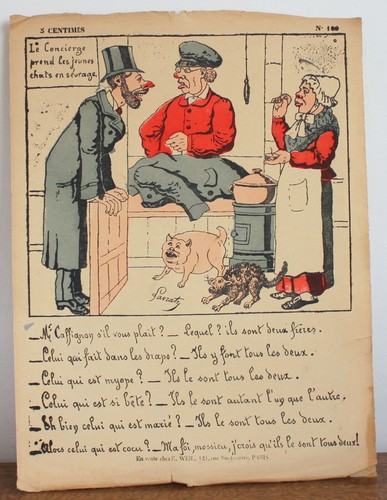 5 CENTIMES
N° 100
Le Concierge
prend les jeunes
chats en sevrage.
Lavrate
_ Mr Caffignon s'il vous plait ? _ Lequel ? ils sont deux frères.
_ Celui qui fait dans les draps ? _ Ils y font tous les deux.
_ Celui qui est myope ? _ Ils le sont tous les deux.
_ Celui qui est si bête ? _ Ils le sont autant l'un que l'autre.
_ Eh bien celui qui est marié ? _ Ils le sont tous les deux.
_ Alors celui qui est cocu ? _ Ma foi, mossieu, j'crois qu'ils le sont tous deux !
En vente chez E. WEIL, PARIS